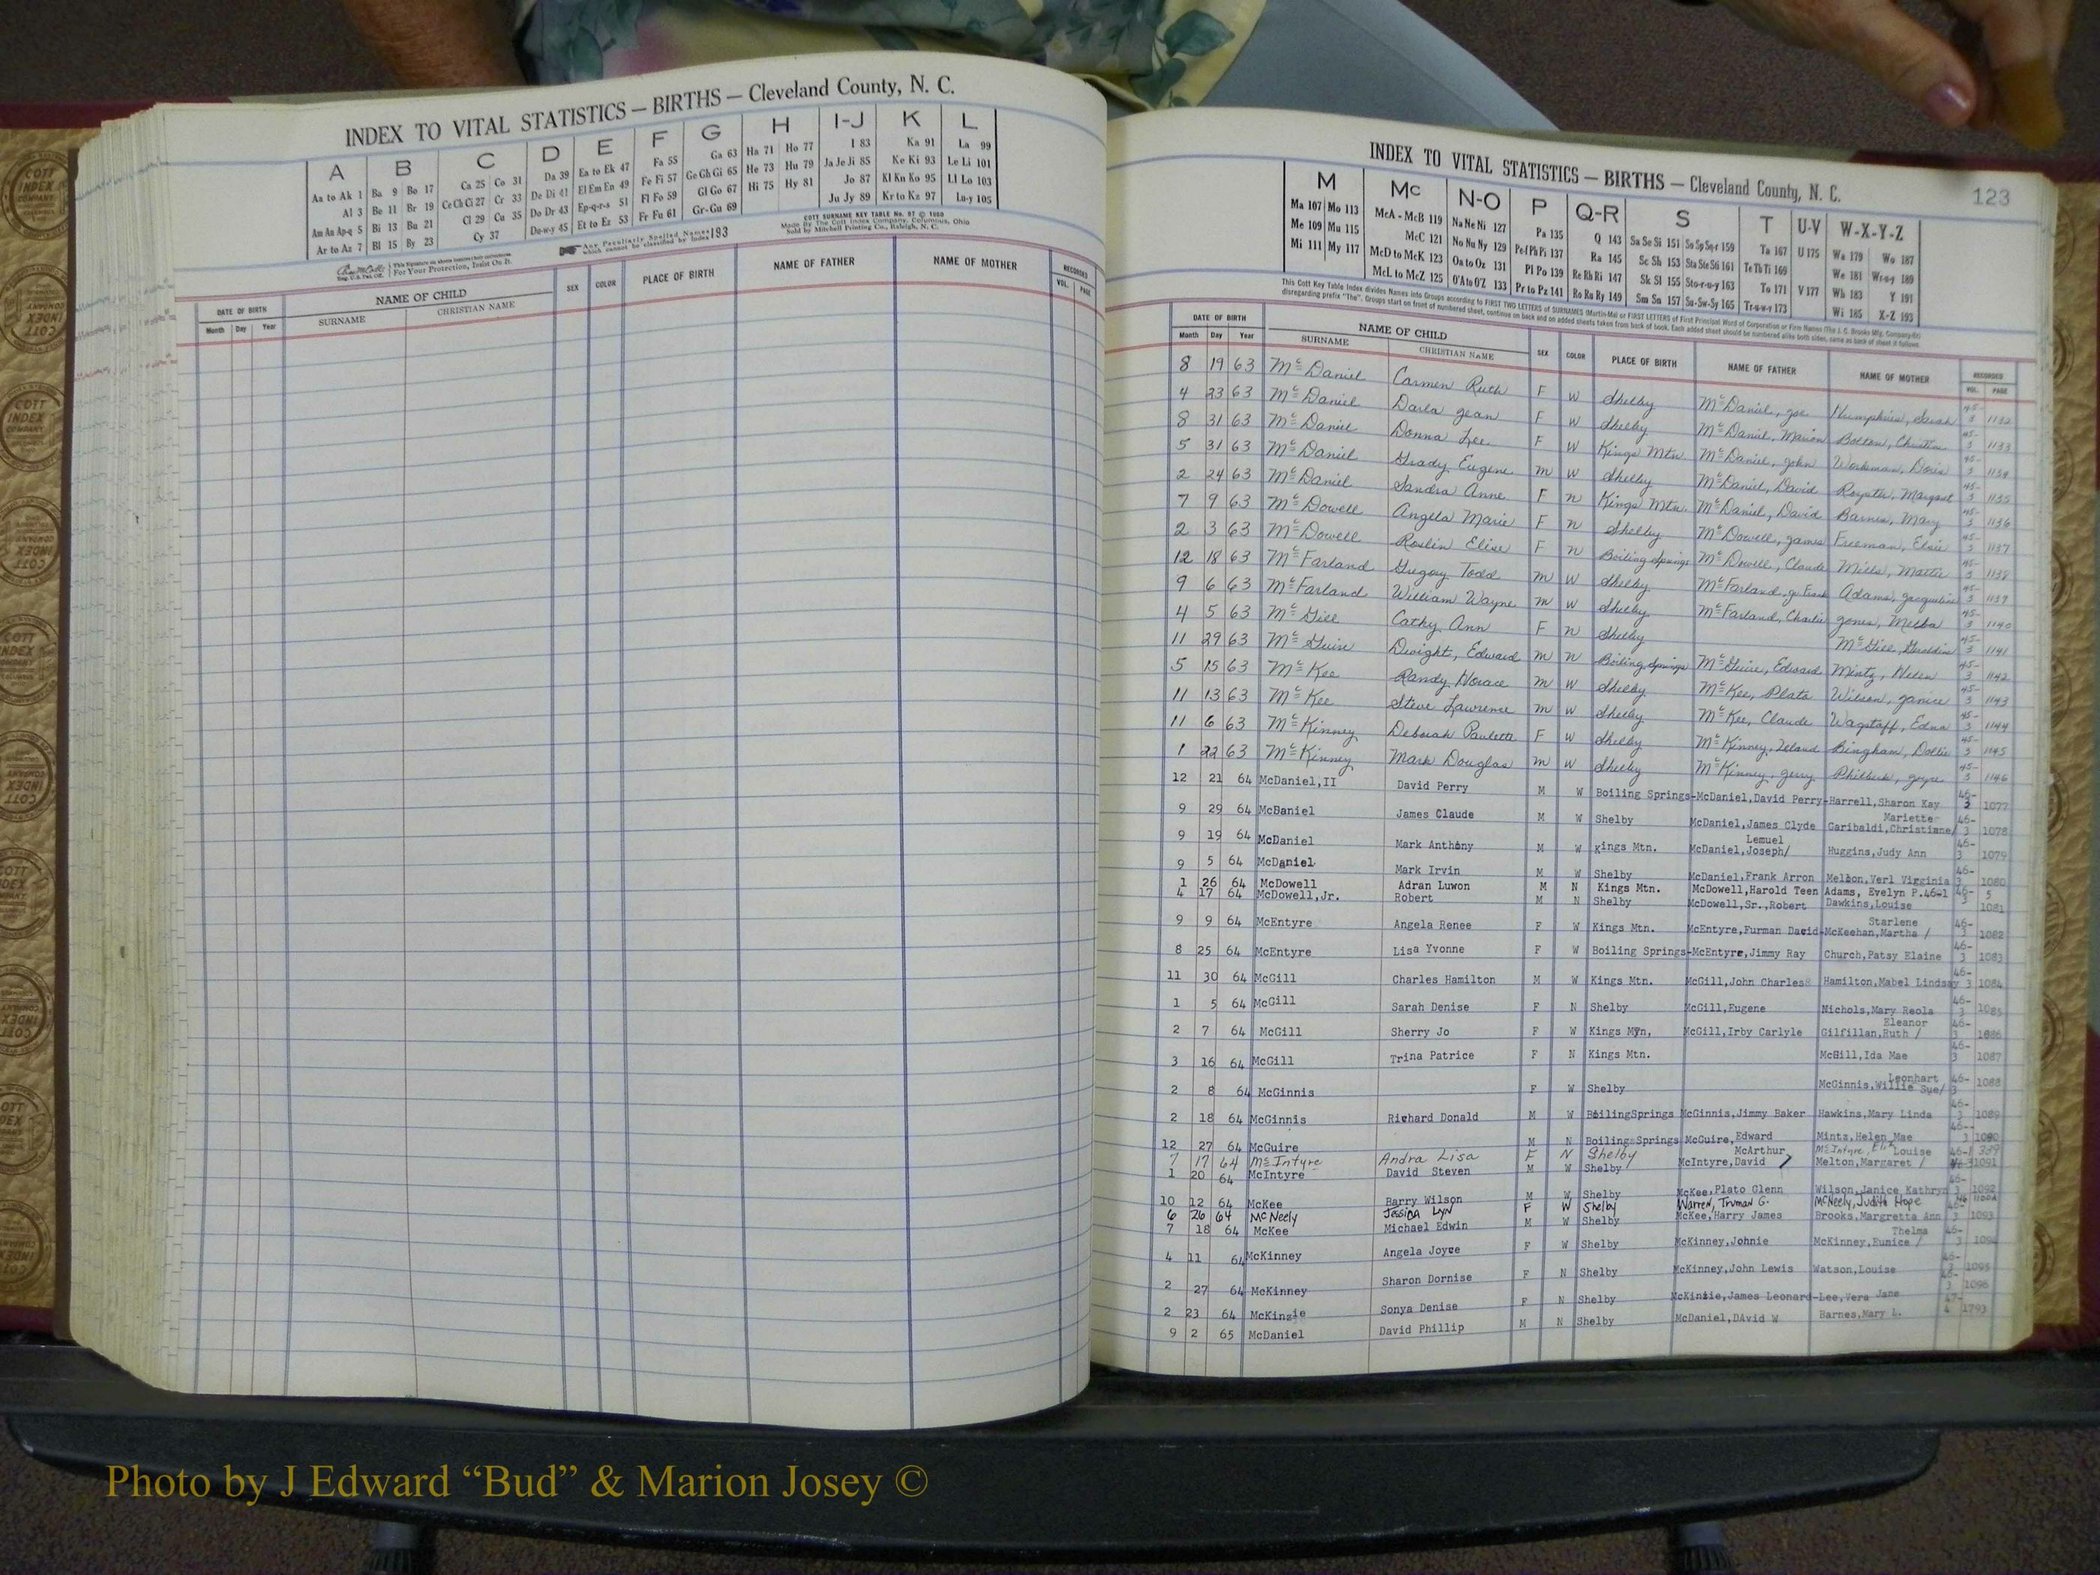 INDEX TO VITAL STATISTICS — BIRTHS — Cleveland County, N. C.
A B C D E F G H I-J K L
Aa to Ak 1 Ba 9 Bo 17 Ca 25 Co 31 Da 39 Ea to Ek 47 Fa 55 Ga 63 Ha 71 Ho 77 I 83 Ka 91 La 99
Al 3 Be 11 Br 19 Ce Ch Ci 27 Cr 33 De Di 41 El Em En 49 Fe Fi 57 Ge Gh Gi 65 He 73 Hu 79 Ja Je Ji 85 Ke Ki 93 Le Li 101
Am An Ap-q 5 Bi 13 Bu 21 Cl 29 Cu 35 Do Dr 43 Ep-q-r-s 51 Fl Fo 59 Gl Go 67 Hi 75 Hy 81 Jo 87 Kl Kn Ko 95 Ll Lo 103
Ar to Az 7 Bl 15 By 23 Cy 37 Du-w-y 45 Et to Ez 53 Fr Fu 61 Gr-Gu 69 Ju Jy 89 Kr to Kz 97 Lu-y 105
This Signature on sheets insures exact correctness.
For Your Protection, Insist On It.
Any Peculiarly Spelled Names which cannot be classified by index 193
COTT SURNAME KEY TABLE No. 97 © 1960
Made By The Cott Index Company, Columbus, Ohio
Sold by Mitchell Printing Co., Raleigh, N. C.
DATE OF BIRTH NAME OF CHILD SEX COLOR PLACE OF BIRTH NAME OF FATHER NAME OF MOTHER RECORDED
Month Day Year SURNAME CHRISTIAN NAME VOL. PAGE
INDEX TO VITAL STATISTICS — BIRTHS — Cleveland County, N. C. 123
M Mc N-O P Q-R S T U-V W-X-Y-Z
Ma 107 Mo 113 McA - McB 119 Na Ne Ni 127 Pa 135 Q 143 Sa Se Si 151 So Sp Sq-r 159 Ta 167 U 175 Wa 179 Wo 187
Me 109 Mu 115 McC 121 No Nu Ny 129 Pe-f Ph Pi 137 Ra 145 Sc Sh 153 Sta Ste Sti 161 Te Th Ti 169 We 181 Wr-u-y 189
Mi 111 My 117 McD to McK 123 Oa to Oz 131 Pl Po 139 Re Rh Ri 147 Sk Sl 155 Sto-r-u-y 163 To 171 V 177 Wh 183 Y 191
McL to McZ 125 O'A to O'Z 133 Pr to Pz 141 Ro Ru Ry 149 Sm Sn 157 Su-Sw-Sy 165 Tr-u-w-y 173 Wi 185 X-Z 193
This Cott Key Table Index divides Names into Groups according to FIRST TWO LETTERS of SURNAMES (Martin-Ma) or FIRST LETTERS of First Principal Word of Corporation or Firm Names
disregarding prefix "The". Groups start on front of numbered sheet, continue on back and on added sheets taken from back of book. Each added sheet should be numbered alike both sides, same as back of sheet it follows.
DATE OF BIRTH NAME OF CHILD SEX COLOR PLACE OF BIRTH NAME OF FATHER NAME OF MOTHER RECORDED
Month Day Year SURNAME CHRISTIAN NAME VOL. PAGE
8 19 63 McDaniel Carmen Ruth F W Shelby McDaniel, Joe Humphries, Sarah 45-3 1132
4 23 63 McDaniel Darla Jean F W Shelby McDaniel, Marion Bolton, Christine 45-3 1133
8 31 63 McDaniel Donna Lee F W Kings Mtn. McDaniel, John Workman, Doris 45-3 1134
5 31 63 McDaniel Grady Eugene M W Shelby McDaniel, David Royster, Margaret 45-3 1135
2 24 63 McDaniel Sandra Anne F N Kings Mtn. McDaniel, David Barnes, Mary 45-3 1136
7 9 63 McDowell Angela Marie F N Shelby McDowell, James Freeman, Elsie 45-3 1137
2 3 63 McDowell Roslin Elise F N Boiling Springs McDowell, Claude Mills, Mattie 45-3 1138
12 18 63 McFarland Gregory Todd M W Shelby McFarland, Jr. Frank Adams, Jacqueline 45-3 1139
9 6 63 McFarland William Wayne M W Shelby McFarland, Charlie Jones, Melba 45-3 1140
4 5 63 McGill Cathy Ann F N Shelby McGill, Geraldine 45-3 1141
11 29 63 McGuire Dwight, Edward M N Boiling Springs McGuire, Edward Mintz, Helen 45-3 1142
5 15 63 McKee Randy Horace M W Shelby McKee, Plato Wilson, Janice 45-3 1143
11 13 63 McKee Steve Lawrence M W Shelby McKee, Claude Wagstaff, Edna 45-3 1144
11 6 63 McKinney Deborah Paulette F W Shelby McKinney, Leland Bingham, Dottie 45-3 1145
1 22 63 McKinney Mark Douglas M W Shelby McKinney, Jerry Philbeck, Joyce 45-3 1146
12 21 64 McDaniel,II David Perry M W Boiling Springs-McDaniel,David Perry-Harrell,Sharon Kay 46-3 1077
9 29 64 McDaniel James Claude M W Shelby McDaniel,James Clyde Garibaldi,Christiane/ Mariette 46-3 1078
9 19 64 McDaniel Mark Anthony M W Kings Mtn. McDaniel,Joseph/ Lemuel Huggins,Judy Ann 46-3 1079
9 5 64 McDaniel Mark Irvin M W Shelby McDaniel,Frank Arron Melton,Verl Virginia 46-3 1080
1 26 64 McDowell Adran Luwon M N Kings Mtn. McDowell,Harold Teen Adams, Evelyn P. 46-1 5
4 17 64 McDowell,Jr. Robert M N Shelby McDowell,Sr.,Robert Dawkins,Louise 46-3 1081
9 9 64 McEntyre Angela Renee F W Kings Mtn. McEntyre,Furman David-McKeehan,Martha / Starlene 46-3 1082
8 25 64 McEntyre Lisa Yvonne F W Boiling Springs-McEntyre,Jimmy Ray Church,Patsy Elaine 46-3 1083
11 30 64 McGill Charles Hamilton M W Kings Mtn. McGill,John Charles Hamilton,Mabel Lindsay 46-3 1084
1 5 64 McGill Sarah Denise F N Shelby McGill,Eugene Nichols,Mary Reola 46-3 1085
2 7 64 McGill Sherry Jo F W Kings Mtn, McGill,Irby Carlyle Gilfillan,Ruth / Eleanor 46-3 1086
3 16 64 McGill Trina Patrice F N Kings Mtn. McGill,Ida Mae 46-3 1087
2 8 64 McGinnis F W Shelby McGinnis,Willie Sue/ Leonhart 46-3 1088
2 18 64 McGinnis Richard Donald M W BoilingSprings McGinnis,Jimmy Baker Hawkins,Mary Linda 46-3 1089
12 27 64 McGuire M N Boiling Springs McGuire,Edward Mintz,Helen Mae 46-3 1090
7 17 64 McIntyre Andra Lisa F N Shelby McIntyre, 46-1 389
1 20 64 McIntyre David Steven M W Shelby McIntyre,David / McArthur Melton,Margaret / Louise 46-3 1091
10 12 64 McKee Barry Wilson M W Shelby McKee,Plato Glenn Wilson,Janice Kathryn 46-3 1092
6 26 64 McNeely Jessica Lyn F W Shelby Warren, Truman G. McNeely, Judith Hope
7 18 64 McKee Michael Edwin M W Shelby McKee,Harry James Brooks,Margretta Ann 46-3 1093
4 11 64 McKinney Angela Joyce F W Shelby McKinney,Johnie McKinney,Eunice / Thelma 46-3 1094
2 27 64 McKinney Sharon Dornise F N Shelby McKinney,John Lewis Watson,Louise 46-3 1095
2 23 64 McKinzie Sonya Denise F N Shelby McKinzie,James Leonard-Lee,Vera Jane 46-3 1096
9 2 65 McDaniel David Phillip M N Shelby McDaniel,DAvid W Barnes,Mary L. 47-4 1793
Photo by J Edward “Bud” & Marion Josey ©